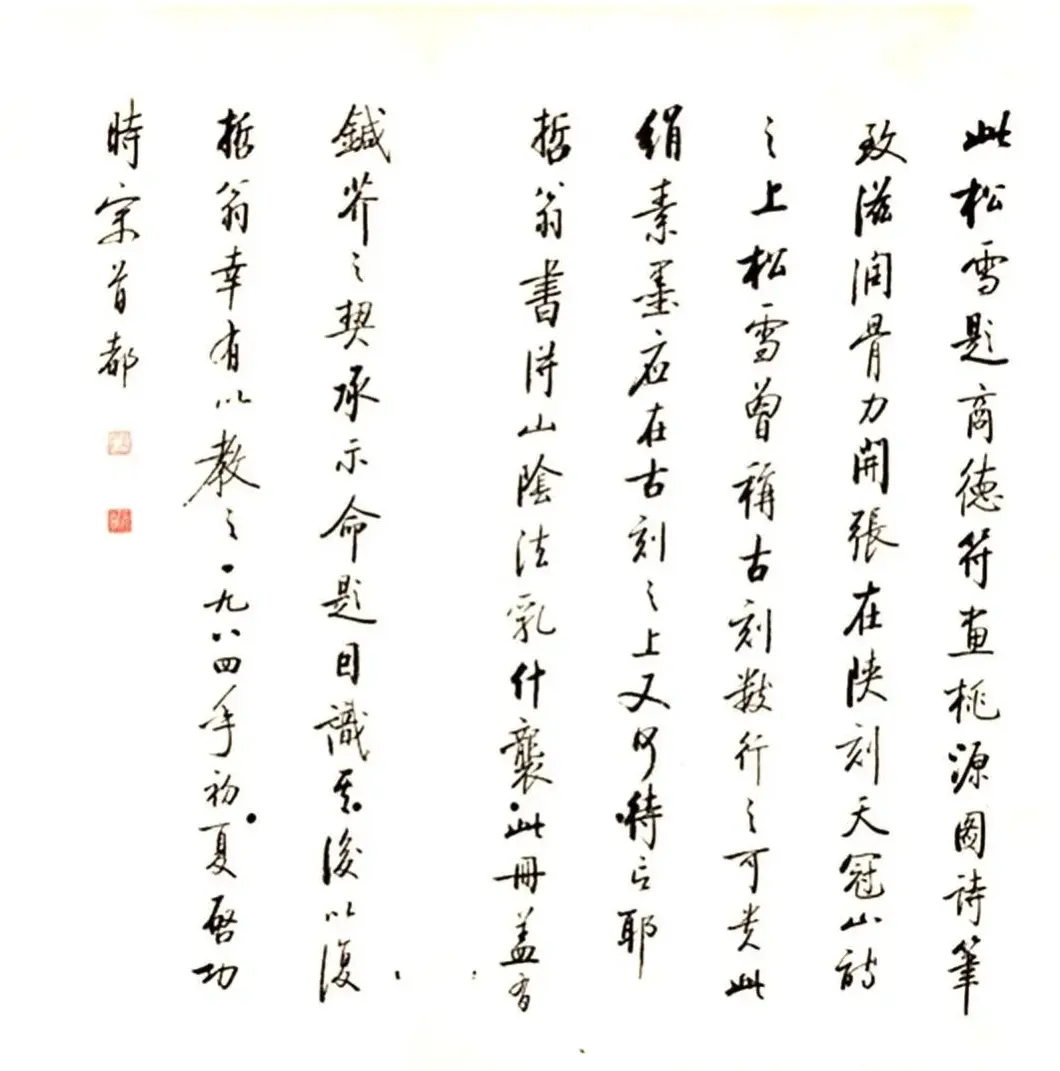 此松雪題商德符畫桃源圖詩筆
致滋潤骨力開張在陝刻天冠山詩
之上松雪曾稱古刻數行之可貴此
絹素墨应在古刻之上又何待言耶
哲翁書得山陰法乳什襲此冊盖有
鍼芥之契承示命題因識其後以復
哲翁幸有以教之一九八四年初夏啓功
時客首都